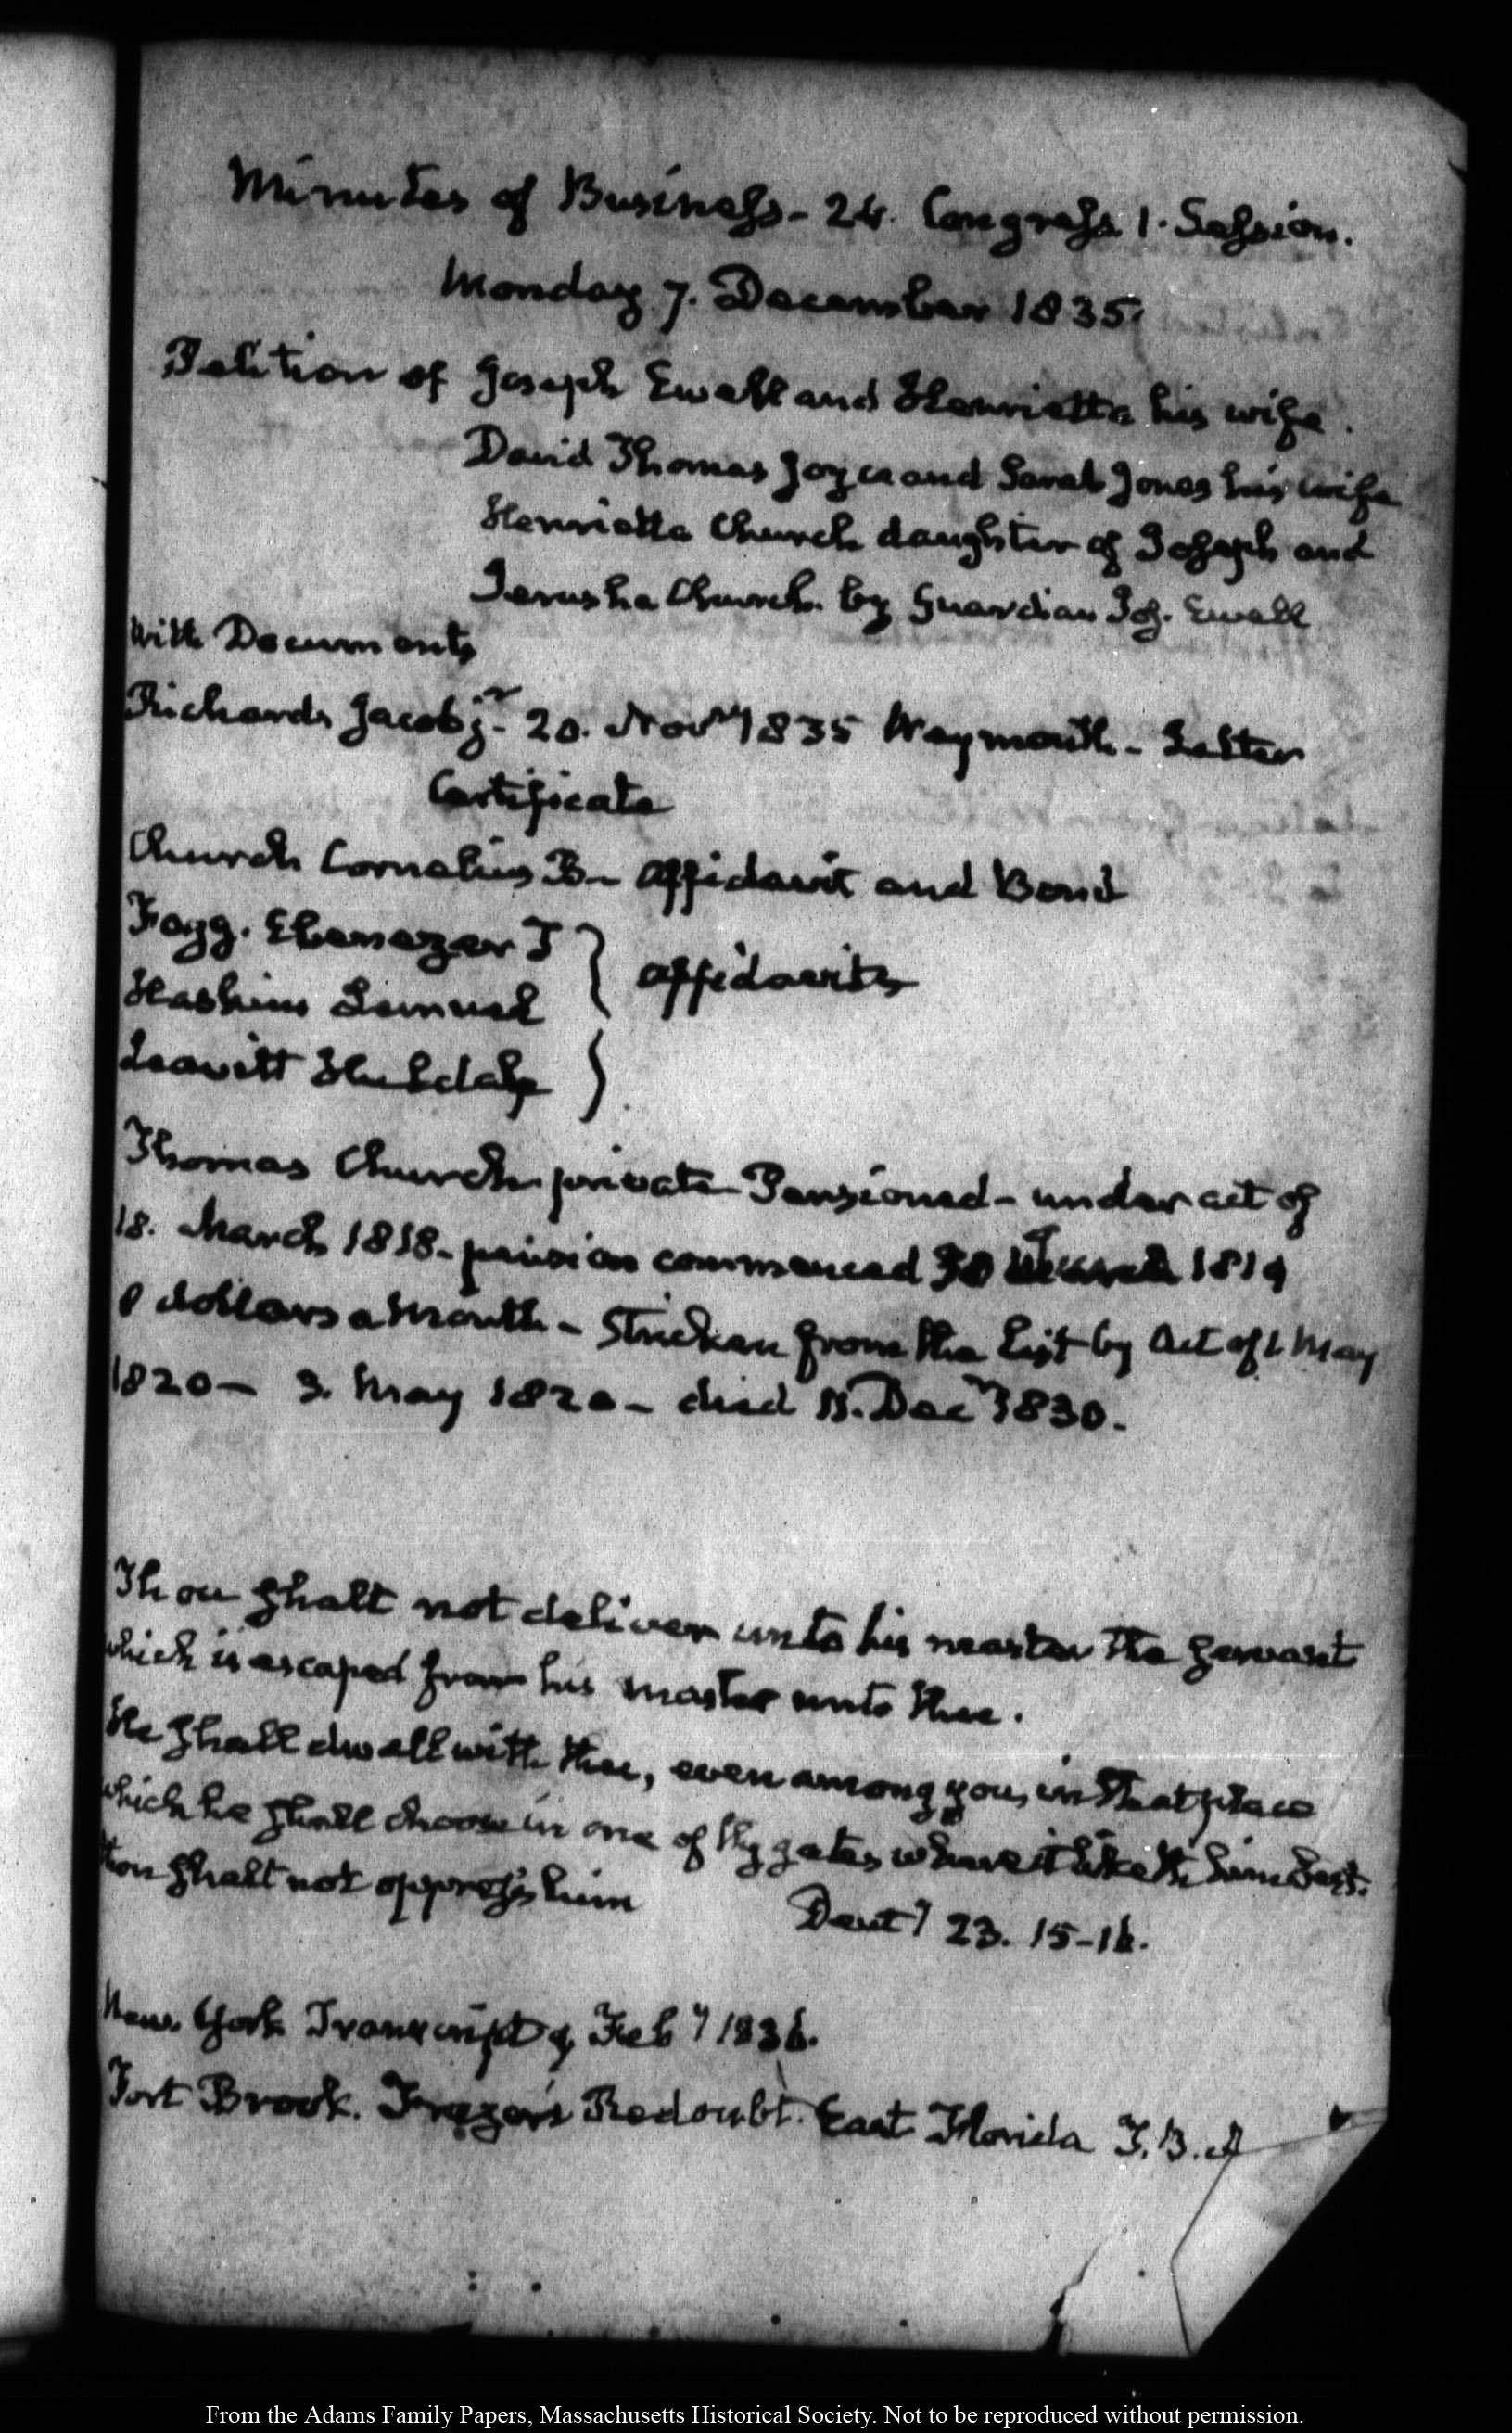 Minutes of Business – 24. Congress. 1. Session.
Monday 7. December 1835.
Petition of Joseph Ewell and Henrietta his wife.
David Thomas Joyce and Sarah Jones his wife
Henrietta Church daughter of Joseph and
Jerusha Church by Guardian Jos. Ewell
with Documents
Richards Jacob jr. 20. Novr 1835 Weymouth – Letter
Certificate
Church Cornelius B – Affidavit and Bond
Fogg. Ebenezer T
Affidavits
Haskins Lemuel
Leavitt Huldah
Thomas Church private Pensioned – under act of
18. March 1818 – pension commenced 30 1819
8 dollars a Month – Stricken from the List by Act of 1 May
1820 – 3. May 1820 – died 11. Decr 1830.
Thou shalt not deliver unto his master the servant
which is escaped from his master unto thee.
He shall dwell with thee, even among you, in that place
which he shall choose in one of thy gates where it liketh him best.
thou shalt not oppress him
Deuty 23. 15–16.
New York Transcript 9 Feby 1836.
Fort Brook. Frazer's Redoubt. East Florida T. B. A
From the Adams Family Papers, Massachusetts Historical Society. Not to be reproduced without permission.